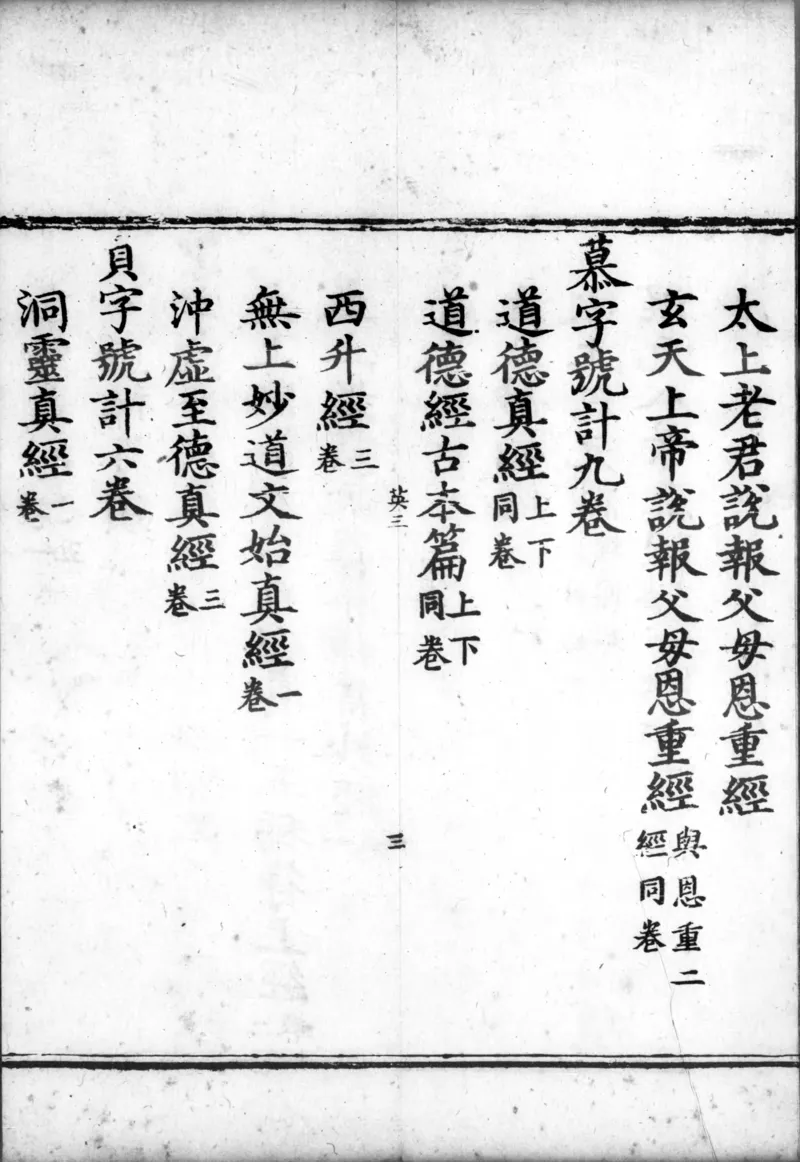 太上老君說報父母恩重經
玄天上帝說報父母恩重經與恩重二經同卷
慕字號計九卷
道德真經上下同卷
道德經古本篇上下同卷
英三
三
西升經三卷
無上妙道文始真經一卷
沖虛至德真經三卷
貝字號計六卷
洞靈真經一卷